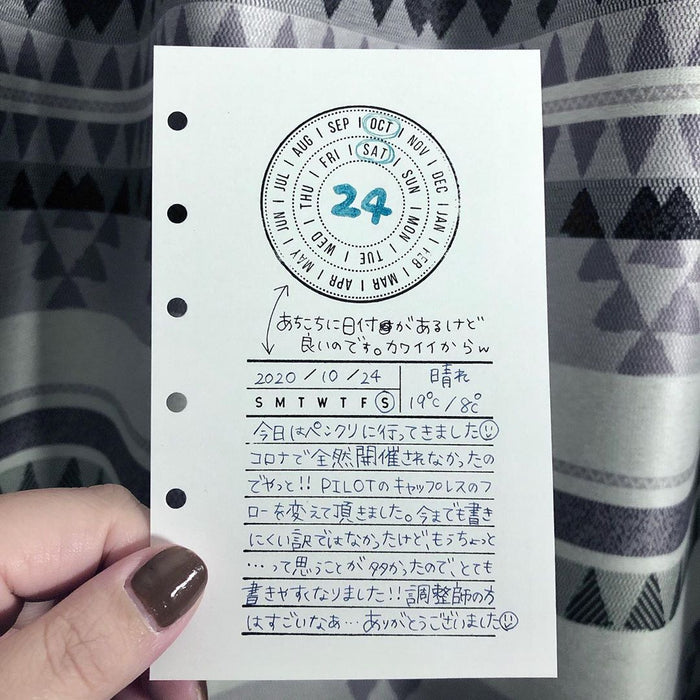 JAN | FEB | MAR | APR | MAY | JUN | JUL | AUG | SEP | OCT | NOV | DEC
SUN | MON | TUE | WED | THU | FRI | SAT
24
あちこちに日付があるけど
良いのです。カワイイからw
2020/10/24
晴れ
S M T W T F S
19℃/8℃
今日はペンクリに行ってきました
コロナで全然開催されなかったの
でやっと!! PILOTのキャップレスのフ
ローを変えて頂きました。今までも書き
にくい訳ではなかったけど、もうちょっと
…って思うことが多かったので、とても
書きやすくなりました!!調整師の方
はすごいなぁ…ありがとうございました